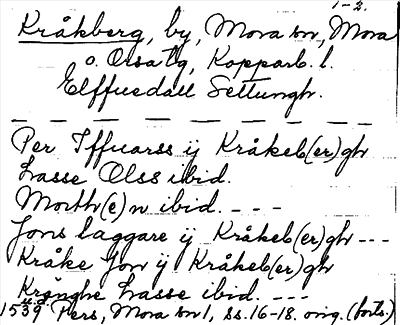 1-2.
Kråkberg, by, Mora sn, Mora
o. Orsa tg, Kopparb. l.
Elffuedall Settungh.
Per Iffuarss ij Kråkeb(er)gh
Lasse Olss ibid.
Morth(e)n ibid. - - -
Jons laggare ij Kråkeb(er)gh - - -
Kråke Jon ij Kråkeb(er)gh
Krånghe Lasse ibid. - - -
1539 Pers, Mora sn 1, ss. 16-18. orig. (forts.)